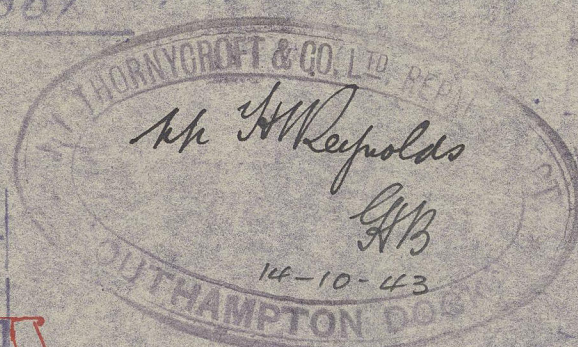 J.I. THORNYCROFT & CO. LTD. REPAIR DEPT
pp HW Reynolds
GHB
14-10-43
SOUTHAMPTON DOCKS